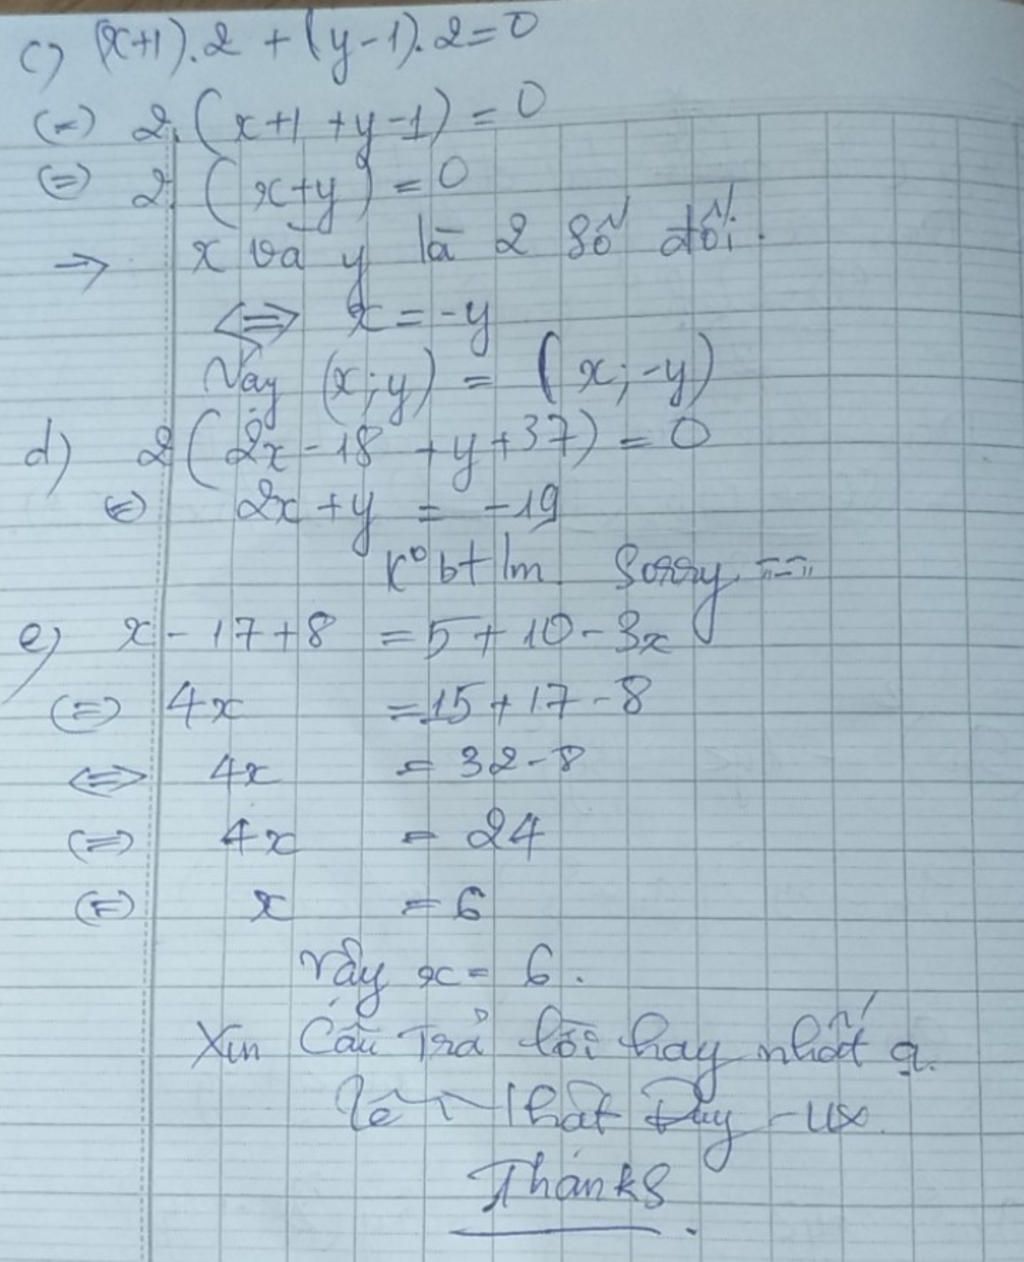 c) (x+1).2 + (y-1).2=0
(=) 2.(x+1+y-1)=0
(=) 2.(x+y)=0
→ x và y là 2 số đối.
<=> x=-y
Vậy (x;y) = (x;-y)
d) 2(2x-18+y+37)=0
(=) 2x+y = -19
K° bt lm. Sorry =-=
e) x-17+8 =5+10-3x
(=) 4x =15+17-8
<=> 4x = 32-8
(=) 4x = 24
(=) x = 6
Vậy x= 6.
Xin Câu Trả lời hay nhất ạ.
Nhất Duy
Thanks.